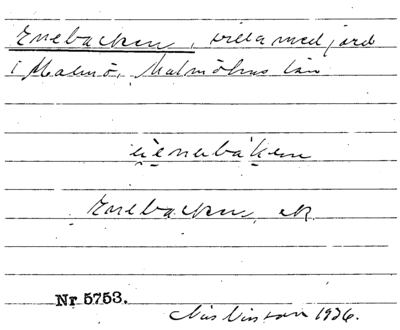 Enebacken, villa med jord
i Malmö, Malmöhus län
Enebacken, ek
Nr 5753.
Nils Nilsson 1926.